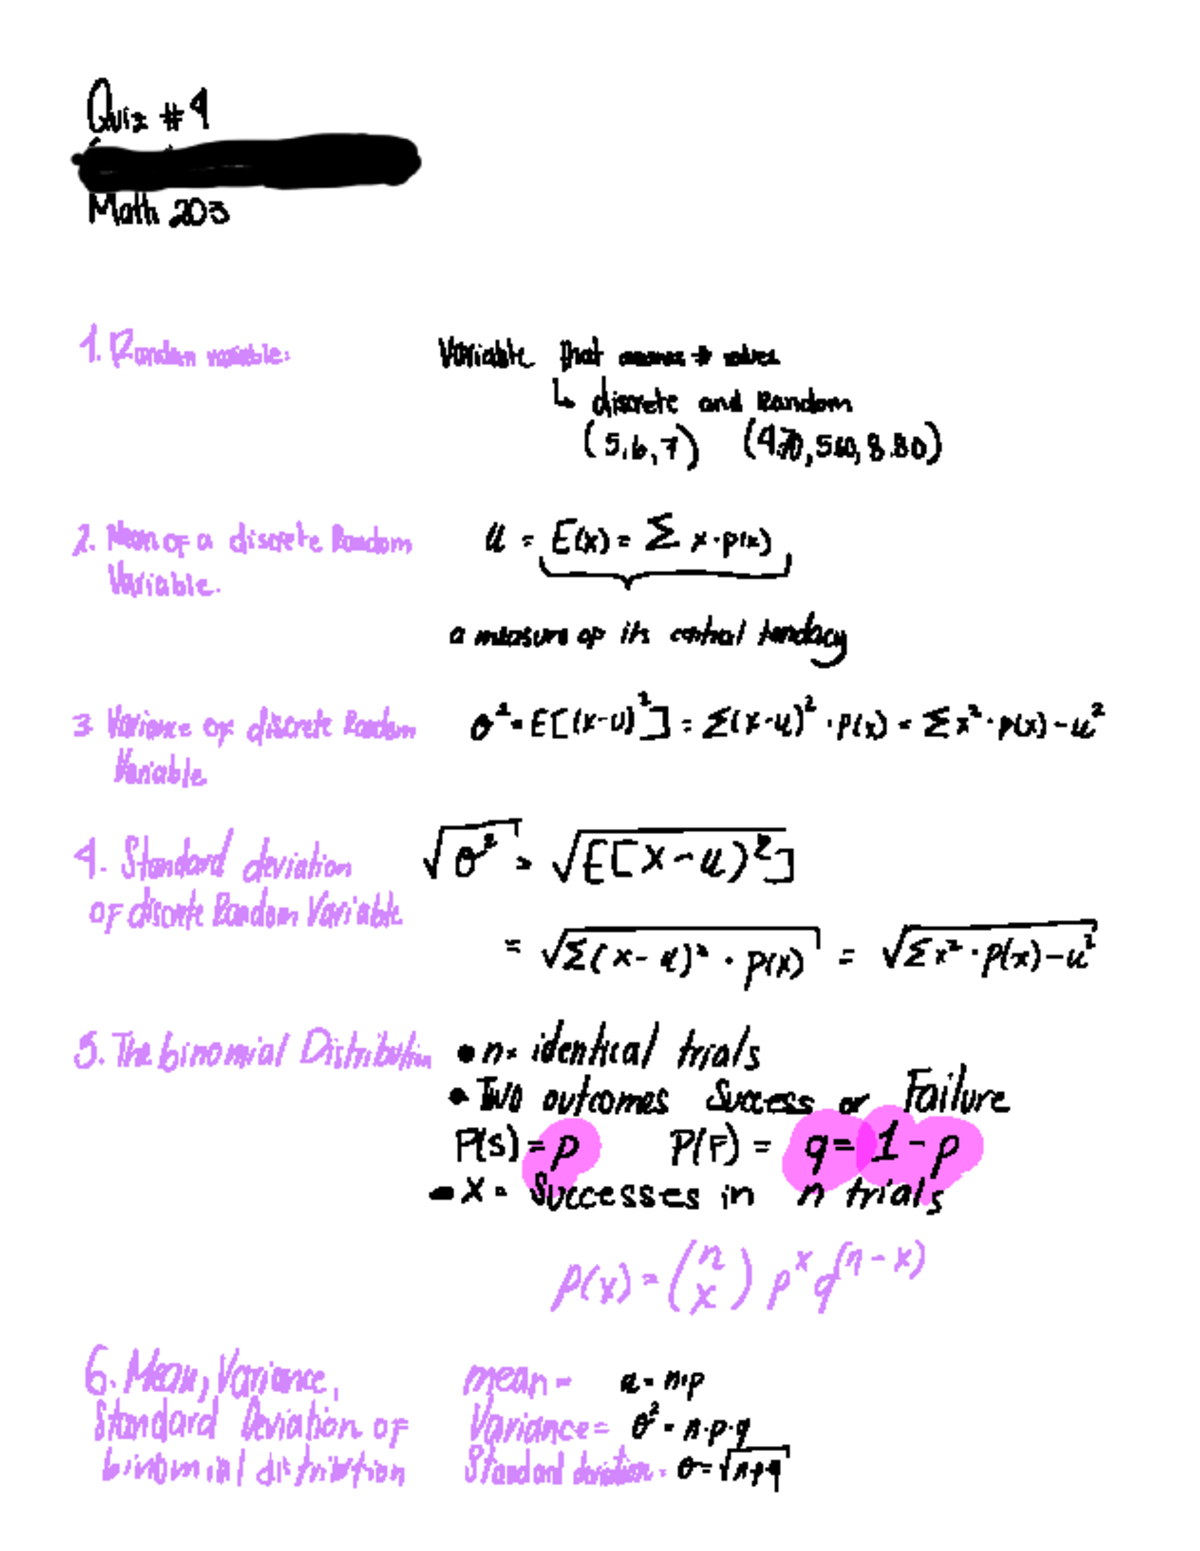 Quiz #4
Math 203
1. Random variable:
Variable that assumes # values
↳ discrete and Random
(5,6,7) (4.70, 5.60, 8.80)
2. Mean of a discrete Random
Variable.
u = E(x) = Σ x·p(x)
a measure of its central tendacy
3 Variance of discrete Random
Variable
σ² = E[(x-u)²] = Σ(x-u)² · p(x) = Σx² · p(x) - u²
4. Standard deviation
of discrete Random Variable
√σ² = √E[X-u)²]
= √Σ(x-u)² · p(x) = √Σx² · p(x) - u²
5. The binomial Distribution
• n= identical trials
• Two outcomes Success or Failure
P(S) = p P(F) = q = 1 - p
• X = Successes in n trials
p(x) = (n x) p^x q^(n-x)
6. Mean, Variance,
Standard Deviation of
binomial distribution
mean = u = n·p
Variance = σ² = n·p·q
Standard deviation = σ = √n·p·q